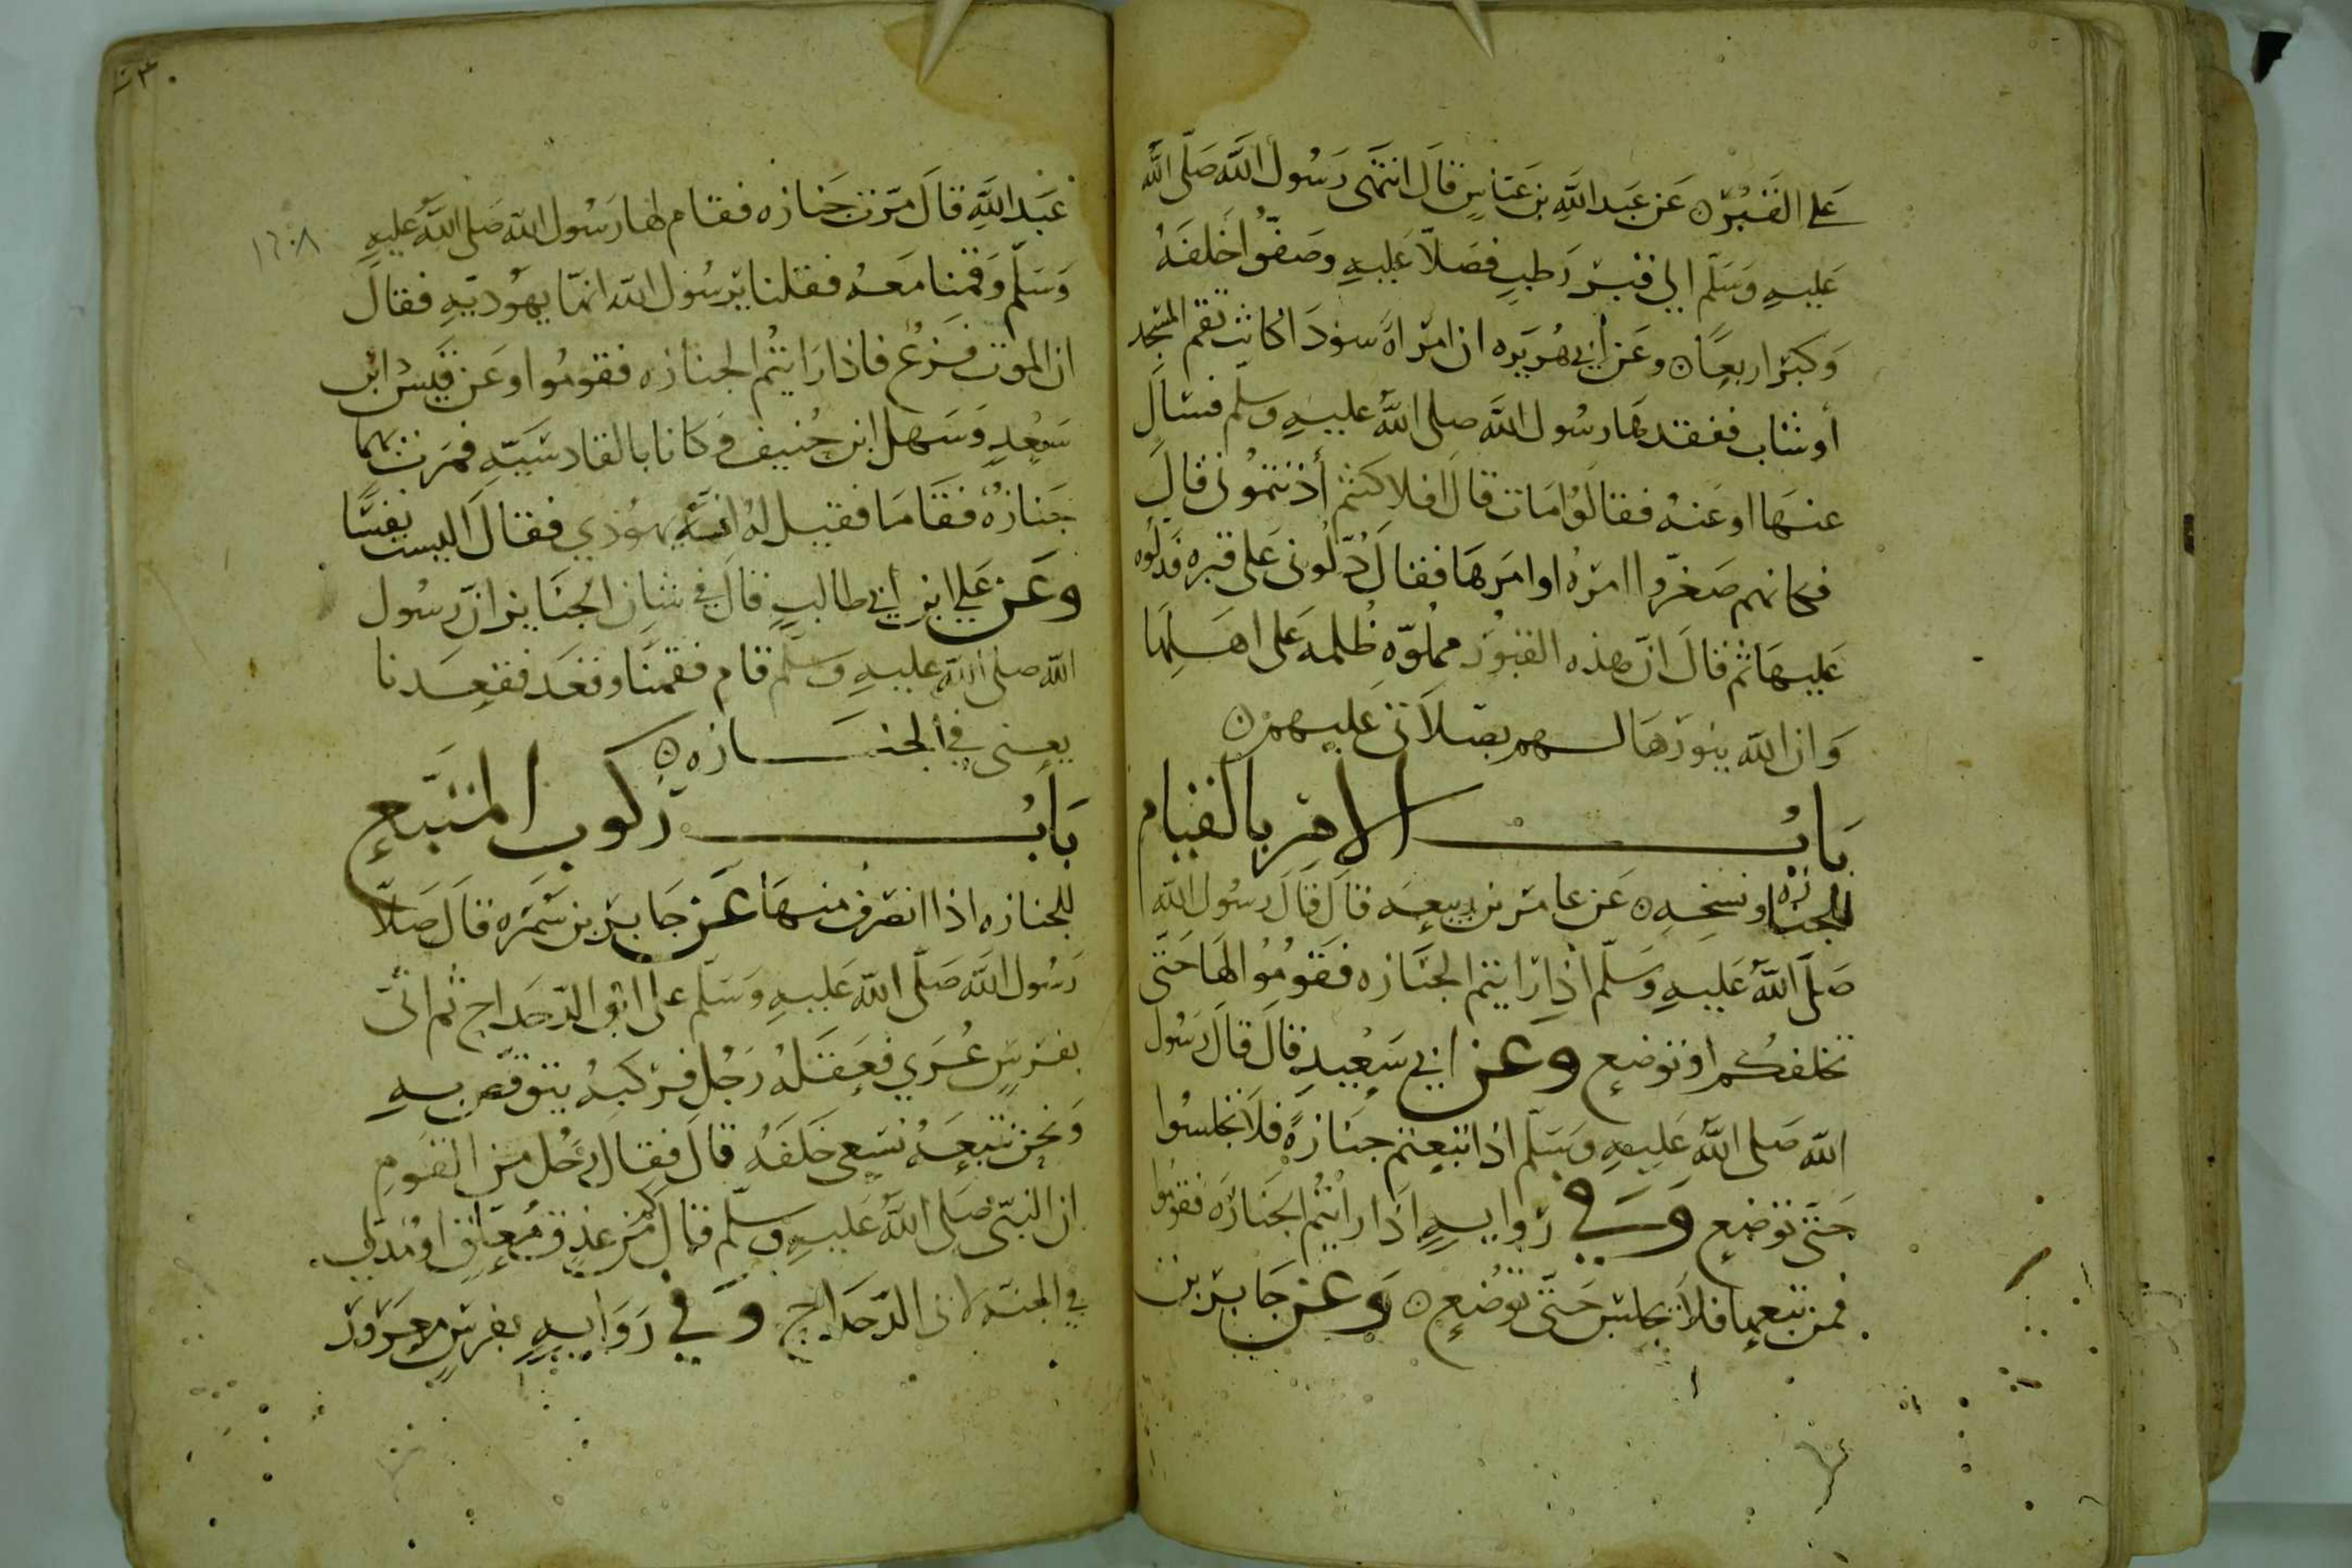 على القبر ن عن عبد الله بن عباس قال انتهى رسول الله صلى الله
عليه وسلم الى قبر رطب فصلا عليه وصفوا خلفه
وكبر اربعا ن وعن أبي هريره ان امراه سودا كانت تقم المسجد
أو شاب ففقدها رسول الله صلى الله عليه وسلم فسال
عنها او عنه فقالوا مات قال افلا كنتم أذنتموني قال
فكانهم صغروا امره او امرها فقال دلوني على قبره فدلوه
عليها ثم قال ان هذه القبور مملوه ظلمه على اهلها
وان الله ينورها لهم بصلاتي عليهم ن
باب الامر بالقيام
للجنازه ونسخه ن عن عامر بن ربيعه قال قال رسول الله
صلى الله عليه وسلم اذا رايتم الجنازه فقوموا لها حتى
تخلفكم او توضع وعن ابي سعيد قال قال رسول
الله صلى الله عليه وسلم اذا تبعتم جنازة فلا تجلسوا
حتى توضع وفي روايه اذا رايتم الجنازه فقوموا
فمن تبعها فلا يجلس حتى توضع ن وعن جابر بن
٢٣٠
عبد الله قال مرت جنازه فقام لها رسول الله صلى الله عليه
١٦٠٨
وسلم وقمنا معه فقلنا يرسول الله انها يهوديه فقال
ان الموت فزع فاذا رايتم الجنازه فقوموا وعن قيس ابن
سعد وسهل ابن حنيف وكانا بالقادسيه فمرت بهما
جنازه فقاما فقيل له انه يهودي فقال اليست نفسا
وعن علي ابن أبي طالب قال في شان الجنايز ان رسول
الله صلى الله عليه وسلم قام فقمنا وقعد فقعدنا
يعني في الجنازه ن
باب ركوب المتبع
للجنازه اذا انصرف منها عن جابر بن سمره قال صلا
رسول الله صلى الله عليه وسلم على ابن الدحداح ثم اتى
بفرس عري فعقله رجل فركبه يتوقص به
ونحن نتبعه نسعى خلفه قال فقال رجل من القوم
ان النبي صلى الله عليه وسلم قال كم من عذق معلق او مدلى
في الجنه لابي الدحداح وفي روايه بفرس معرور